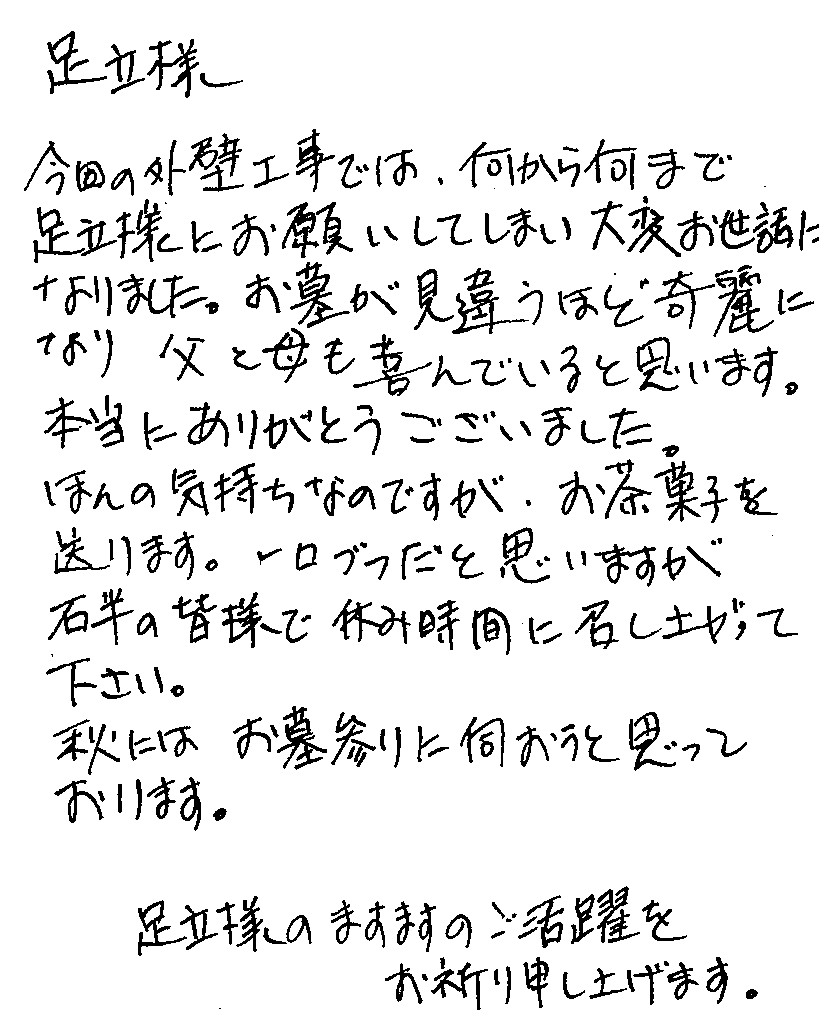 足立様
今回の外壁工事では、何から何まで
足立様にお願いしてしまい大変お世話に
なりました。お墓が見違うほど奇麗に
なり 父と母も喜んでいると思います。
本当にありがとうございました。
ほんの気持ちなのですが、お茶菓子を
送ります。一口ブラだと思いますが
石半の皆様で休み時間に召し上がって
下さい。
秋には お墓参りに伺おうと思って
おります。
足立様のますますのご活躍を
お祈り申し上げます。